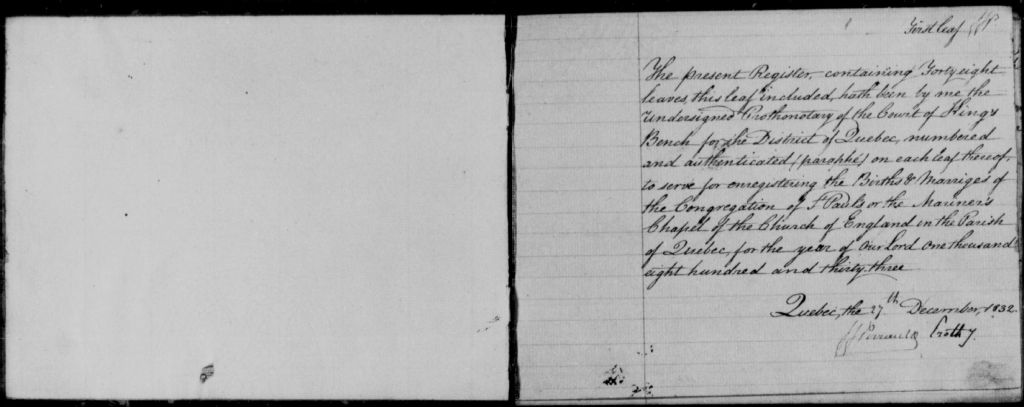 First leaf
The present Register, containing Forty eight
leaves, this leaf included, hath been by me the
undersigned Prothonotary of the Court of Kings
Bench for the District of Quebec, numbered
and authenticated (paraphé) on each leaf thereof,
to serve for enregistering the Births & Marriges of
the Congregation of St Pauls or the Mariners
Chapel of the Church of England in the Parish
of Quebec, for the year of Our Lord One thousand
eight hundred and thirty three
Quebec, the 27th December, 1832.
Perrault Prothy.